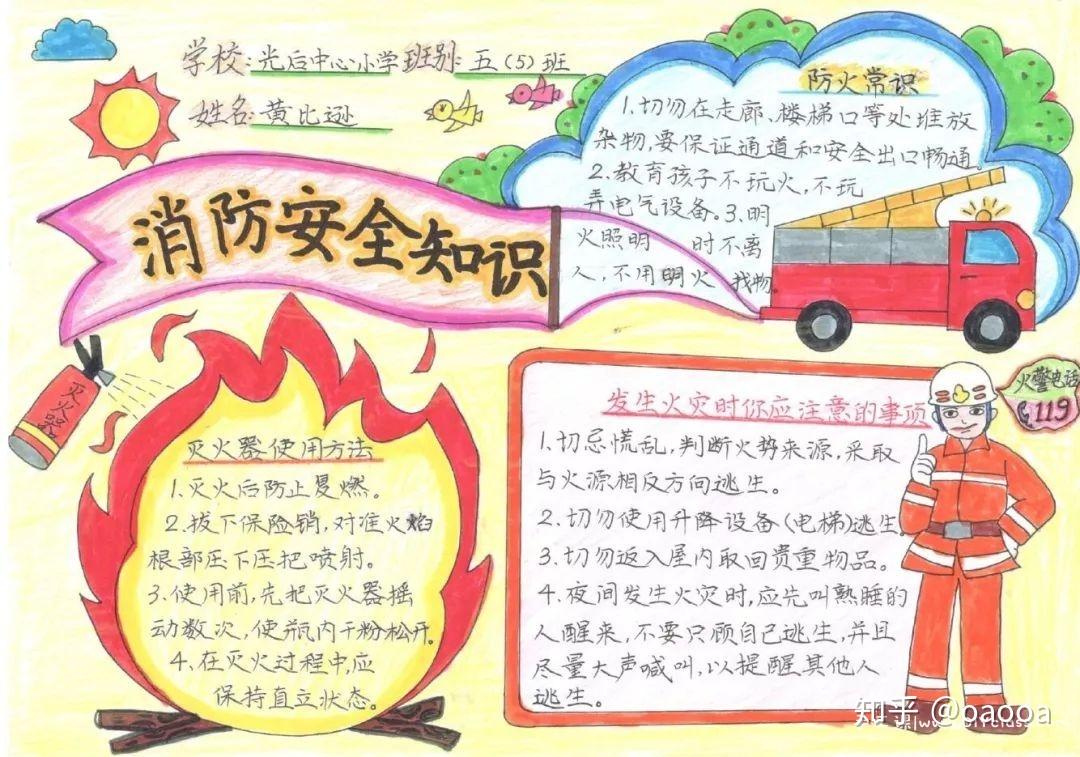 学校:光后中心小学班别:五(5)班
姓名:黄比逊
消防安全知识
防火常识
1.切勿在走廊、楼梯口等处堆放
杂物,要保证通道和安全出口畅通。
2.教育孩子不玩火,不玩
弄电气设备。3.明
火照明 时不离
人,不用明火 找物。
灭火器
灭火器使用方法
1.灭火后防止复燃。
2.拔下保险销,对准火焰
根部压下压把喷射。
3.使用前,先把灭火器摇
动数次,使瓶内干粉松开。
4.在灭火过程中,应
保持直立状态。
发生火灾时你应注意的事项
1.切忌慌乱,判断火势来源,采取
与火源相反方向逃生。
2.切勿使用升降设备(电梯)逃生。
3.切勿返入屋内取回贵重物品。
4.夜间发生火灾时,应先叫熟睡的
人醒来,不要只顾自己逃生,并且
尽量大声喊叫,以提醒其他人
逃生。
火警电话
119
知乎 @baooa